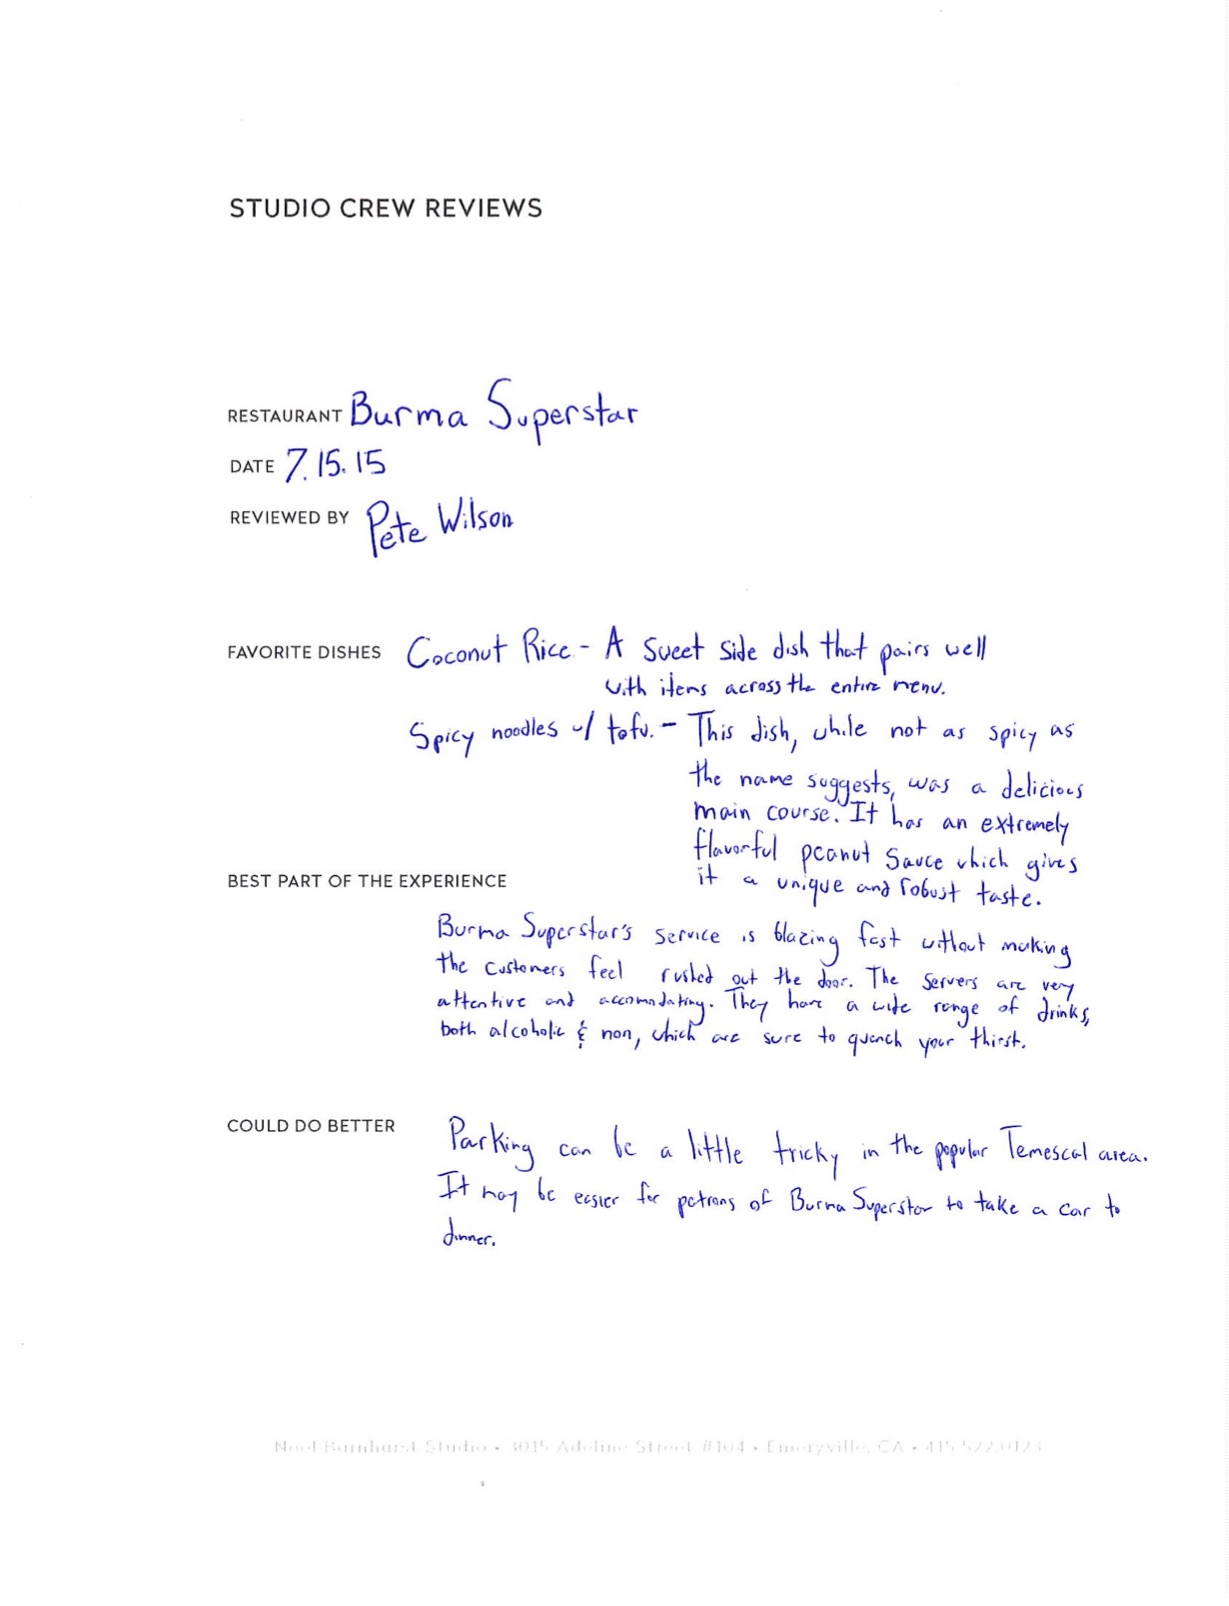 STUDIO CREW REVIEWS
RESTAURANT Burma Superstar
DATE 7.15.15
REVIEWED BY Pete Wilson
FAVORITE DISHES Coconut Rice - A sweet side dish that pairs well
with items across the entire menu.
Spicy noodles w/ tofu. - This dish, while not as spicy as
the name suggests, was a delicious
main course. It has an extremely
flavorful peanut sauce which gives
it a unique and robust taste.
BEST PART OF THE EXPERIENCE
Burma Superstar's service is blazing fast without making
the customers feel rushed out the door. The servers are very
attentive and accomodating. They have a wide range of drinks,
both alcoholic & non, which are sure to quench your thirst.
COULD DO BETTER Parking can be a little tricky in the popular Temescal area.
It may be easier for patrons of Burma Superstar to take a car to
dinner.
Noel Barnhurst Studio • 3015 Adeline Street #104 • Emeryville, CA • 415.522.0123